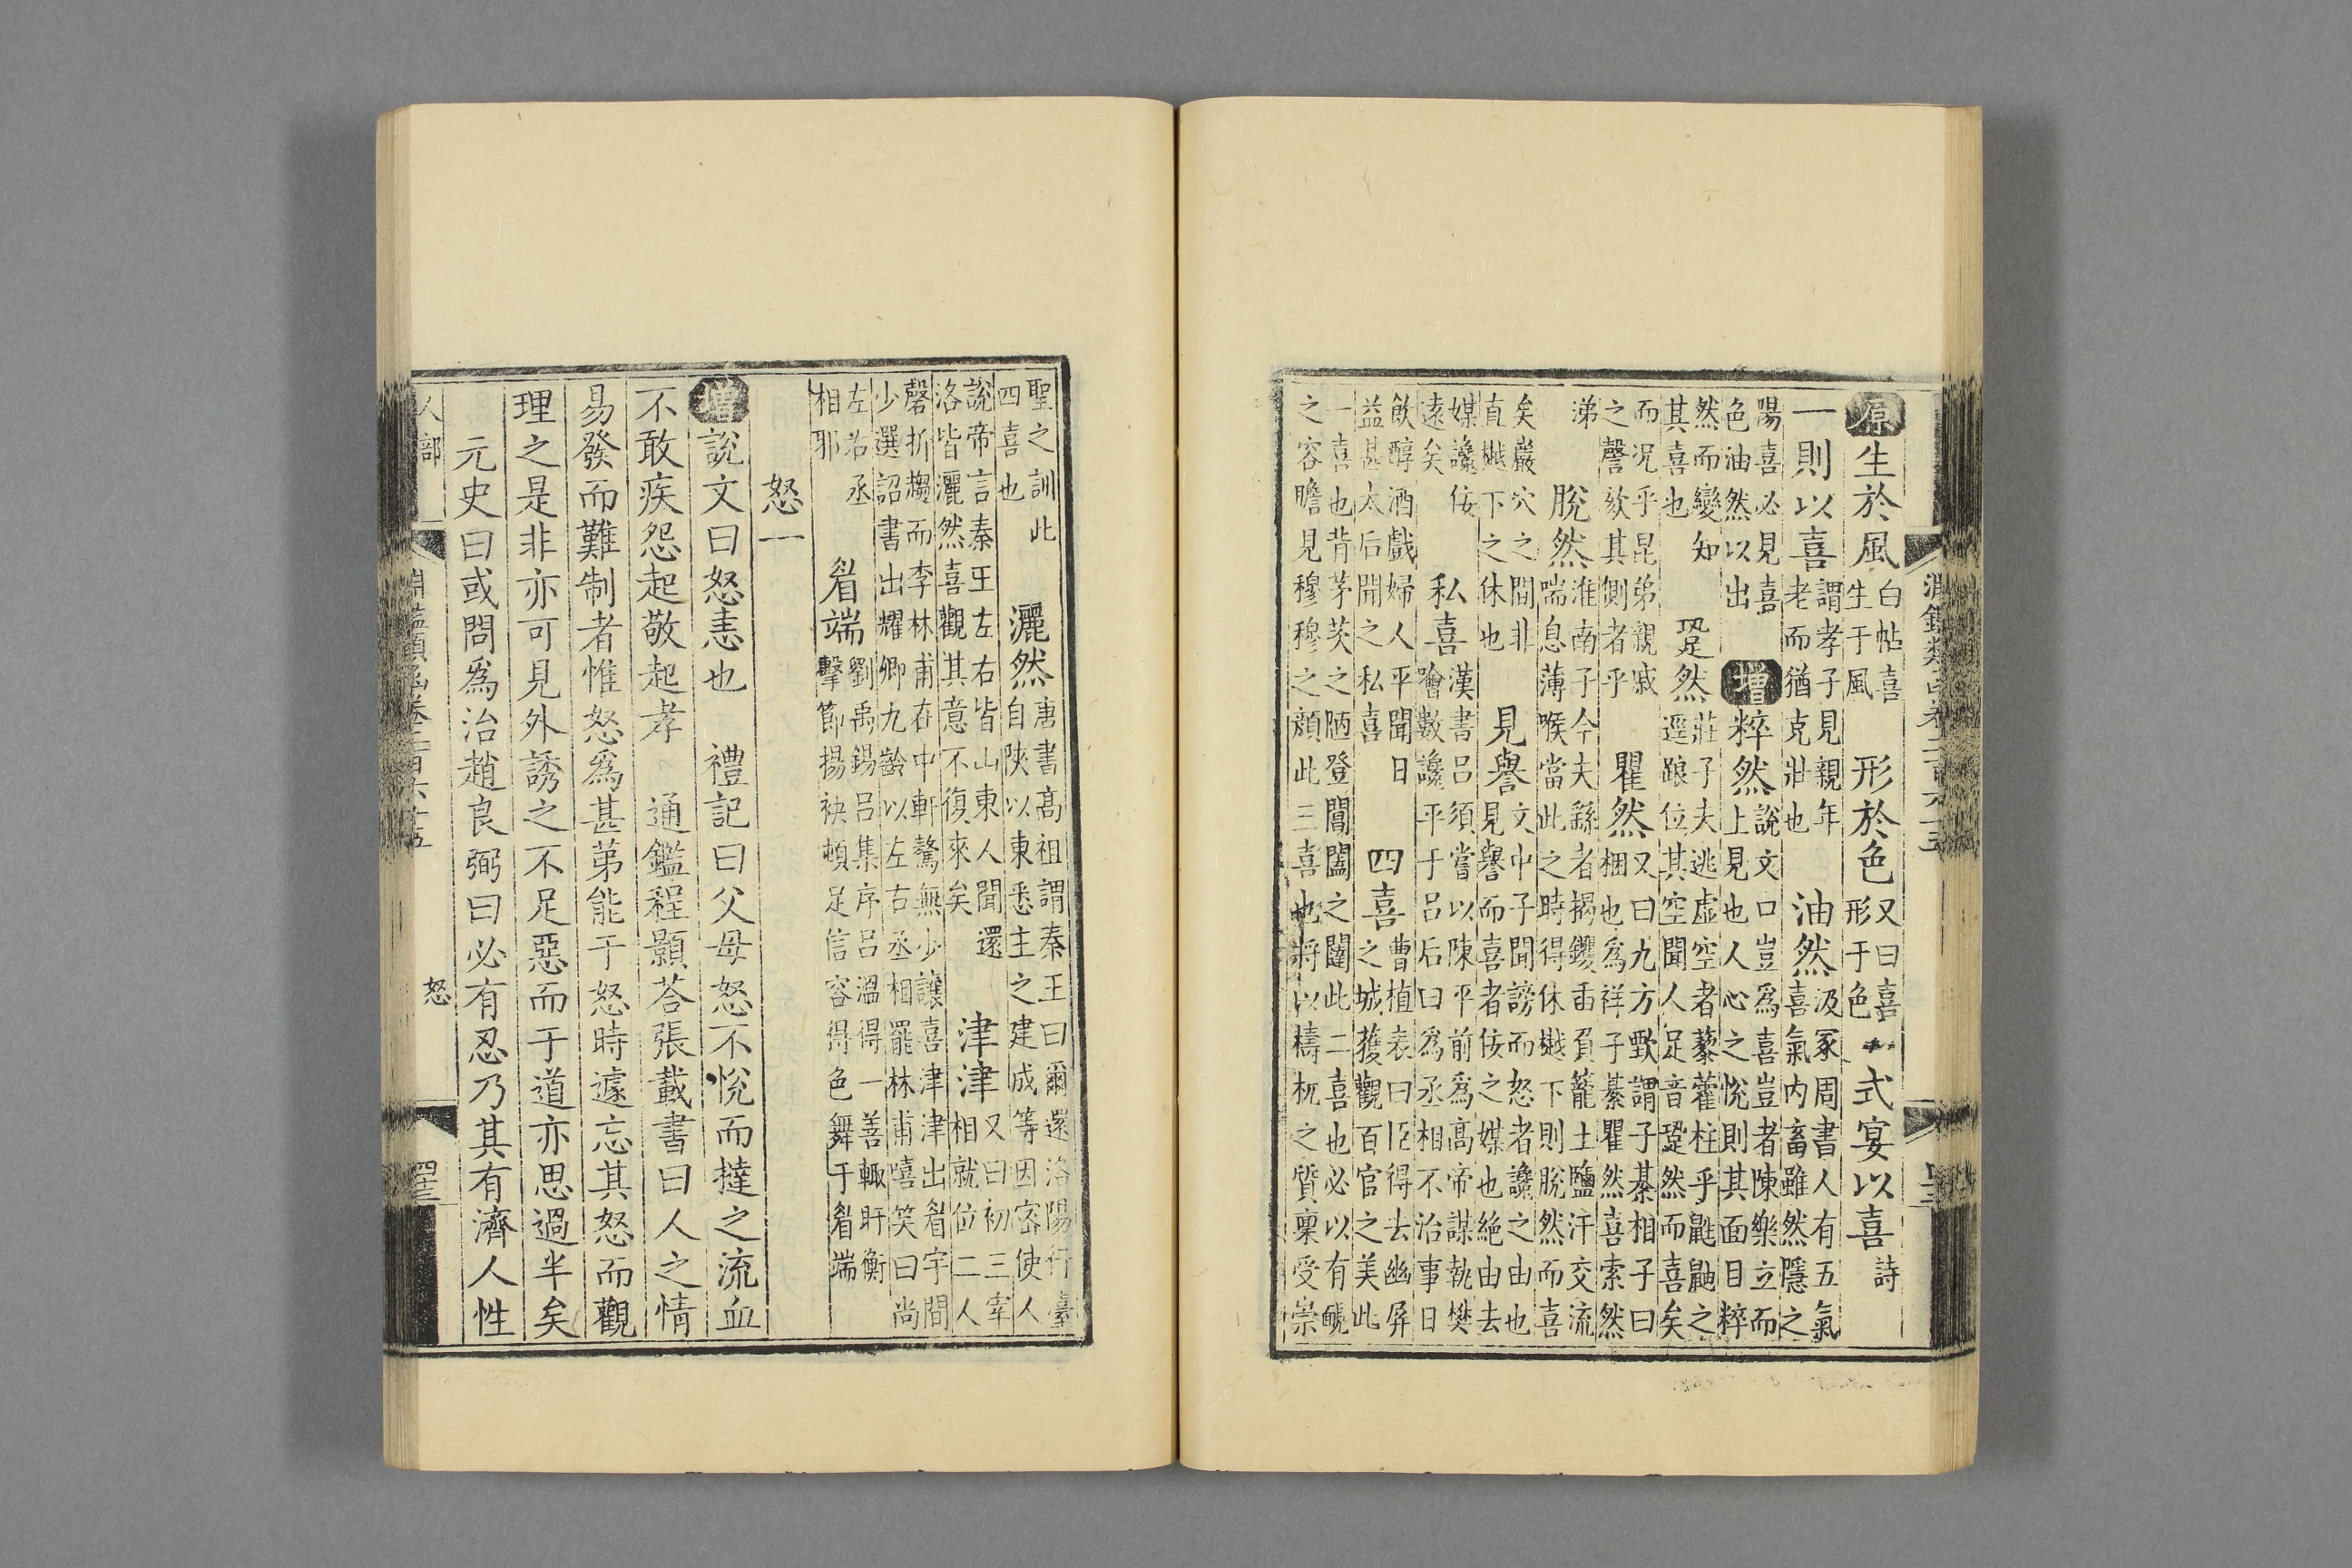 原生於風白帖喜生于風形於色又曰喜形于色式宴以喜詩
一則以喜謂孝子見親年老而猶克壯也油然汲冢周書人有五氣喜氣内畜雖然隱之
陽喜必見喜色油然以出增粹然說文口豈為喜豈者陳樂立而上見也人心之悅則其面目粹
然而變知其喜也跫然莊子夫逃虛空者藜藿柱乎鼪鼬之逕踉位其空聞人足音跫然而喜矣
而況乎昆弟親戚之謦欬其側者乎瞿然又曰九方歅謂子綦相子曰梱也為祥子綦瞿然喜索然
涕脫然淮南子今夫繇者揭钁臿負籠土鹽汗交流喘息薄喉當此之時得休樾下則脫然而喜
矣巖穴之間非直樾下之休也見譽文中子聞謗而怒者讒之由也見譽而喜者佞之媒也絶由去
媒讒佞遠矣私喜漢書呂須嘗以陳平前為高帝謀執樊噲數讒平于呂后曰為丞相不治事日
飲醇酒戲婦人平聞日益甚太后聞之私喜四喜曹植表曰臣得去幽屏之城獲觀百官之美此
一喜也背茅茨之陋登閶闔之闥此二喜也必以有靦之容瞻見穆穆之顏此三喜也將以檮杌之質稟受崇
聖之訓此四喜也灑然唐書高祖謂秦王曰爾還洛陽行臺自陝以東悉主之建成等因密使人
說帝言秦王左右皆山東人聞還洛皆灑然喜觀其意不復來矣津津又曰初三宰相就位二人
磬折趨而李林甫在中軒驁無少讓喜津津出眉宇間少選詔書出耀卿九齡以左右丞相罷林甫嘻笑曰尚
左右丞相耶眉端劉禹錫呂集序呂溫得一善輒盱衡擊節揚袂頓足信容得色舞于眉端
怒一
增說文曰怒恚也 禮記曰父母怒不悅而撻之流血
不敢疾怨起敬起孝 通鑑程顥荅張載書曰人之情
易發而難制者惟怒爲甚苐能于怒時遽忘其怒而觀
理之是非亦可見外誘之不足惡而于道亦思過半矣
元史曰或問爲治趙良弼曰必有忍乃其有濟人性
人部 淵鑑類函卷三百六十五 怒